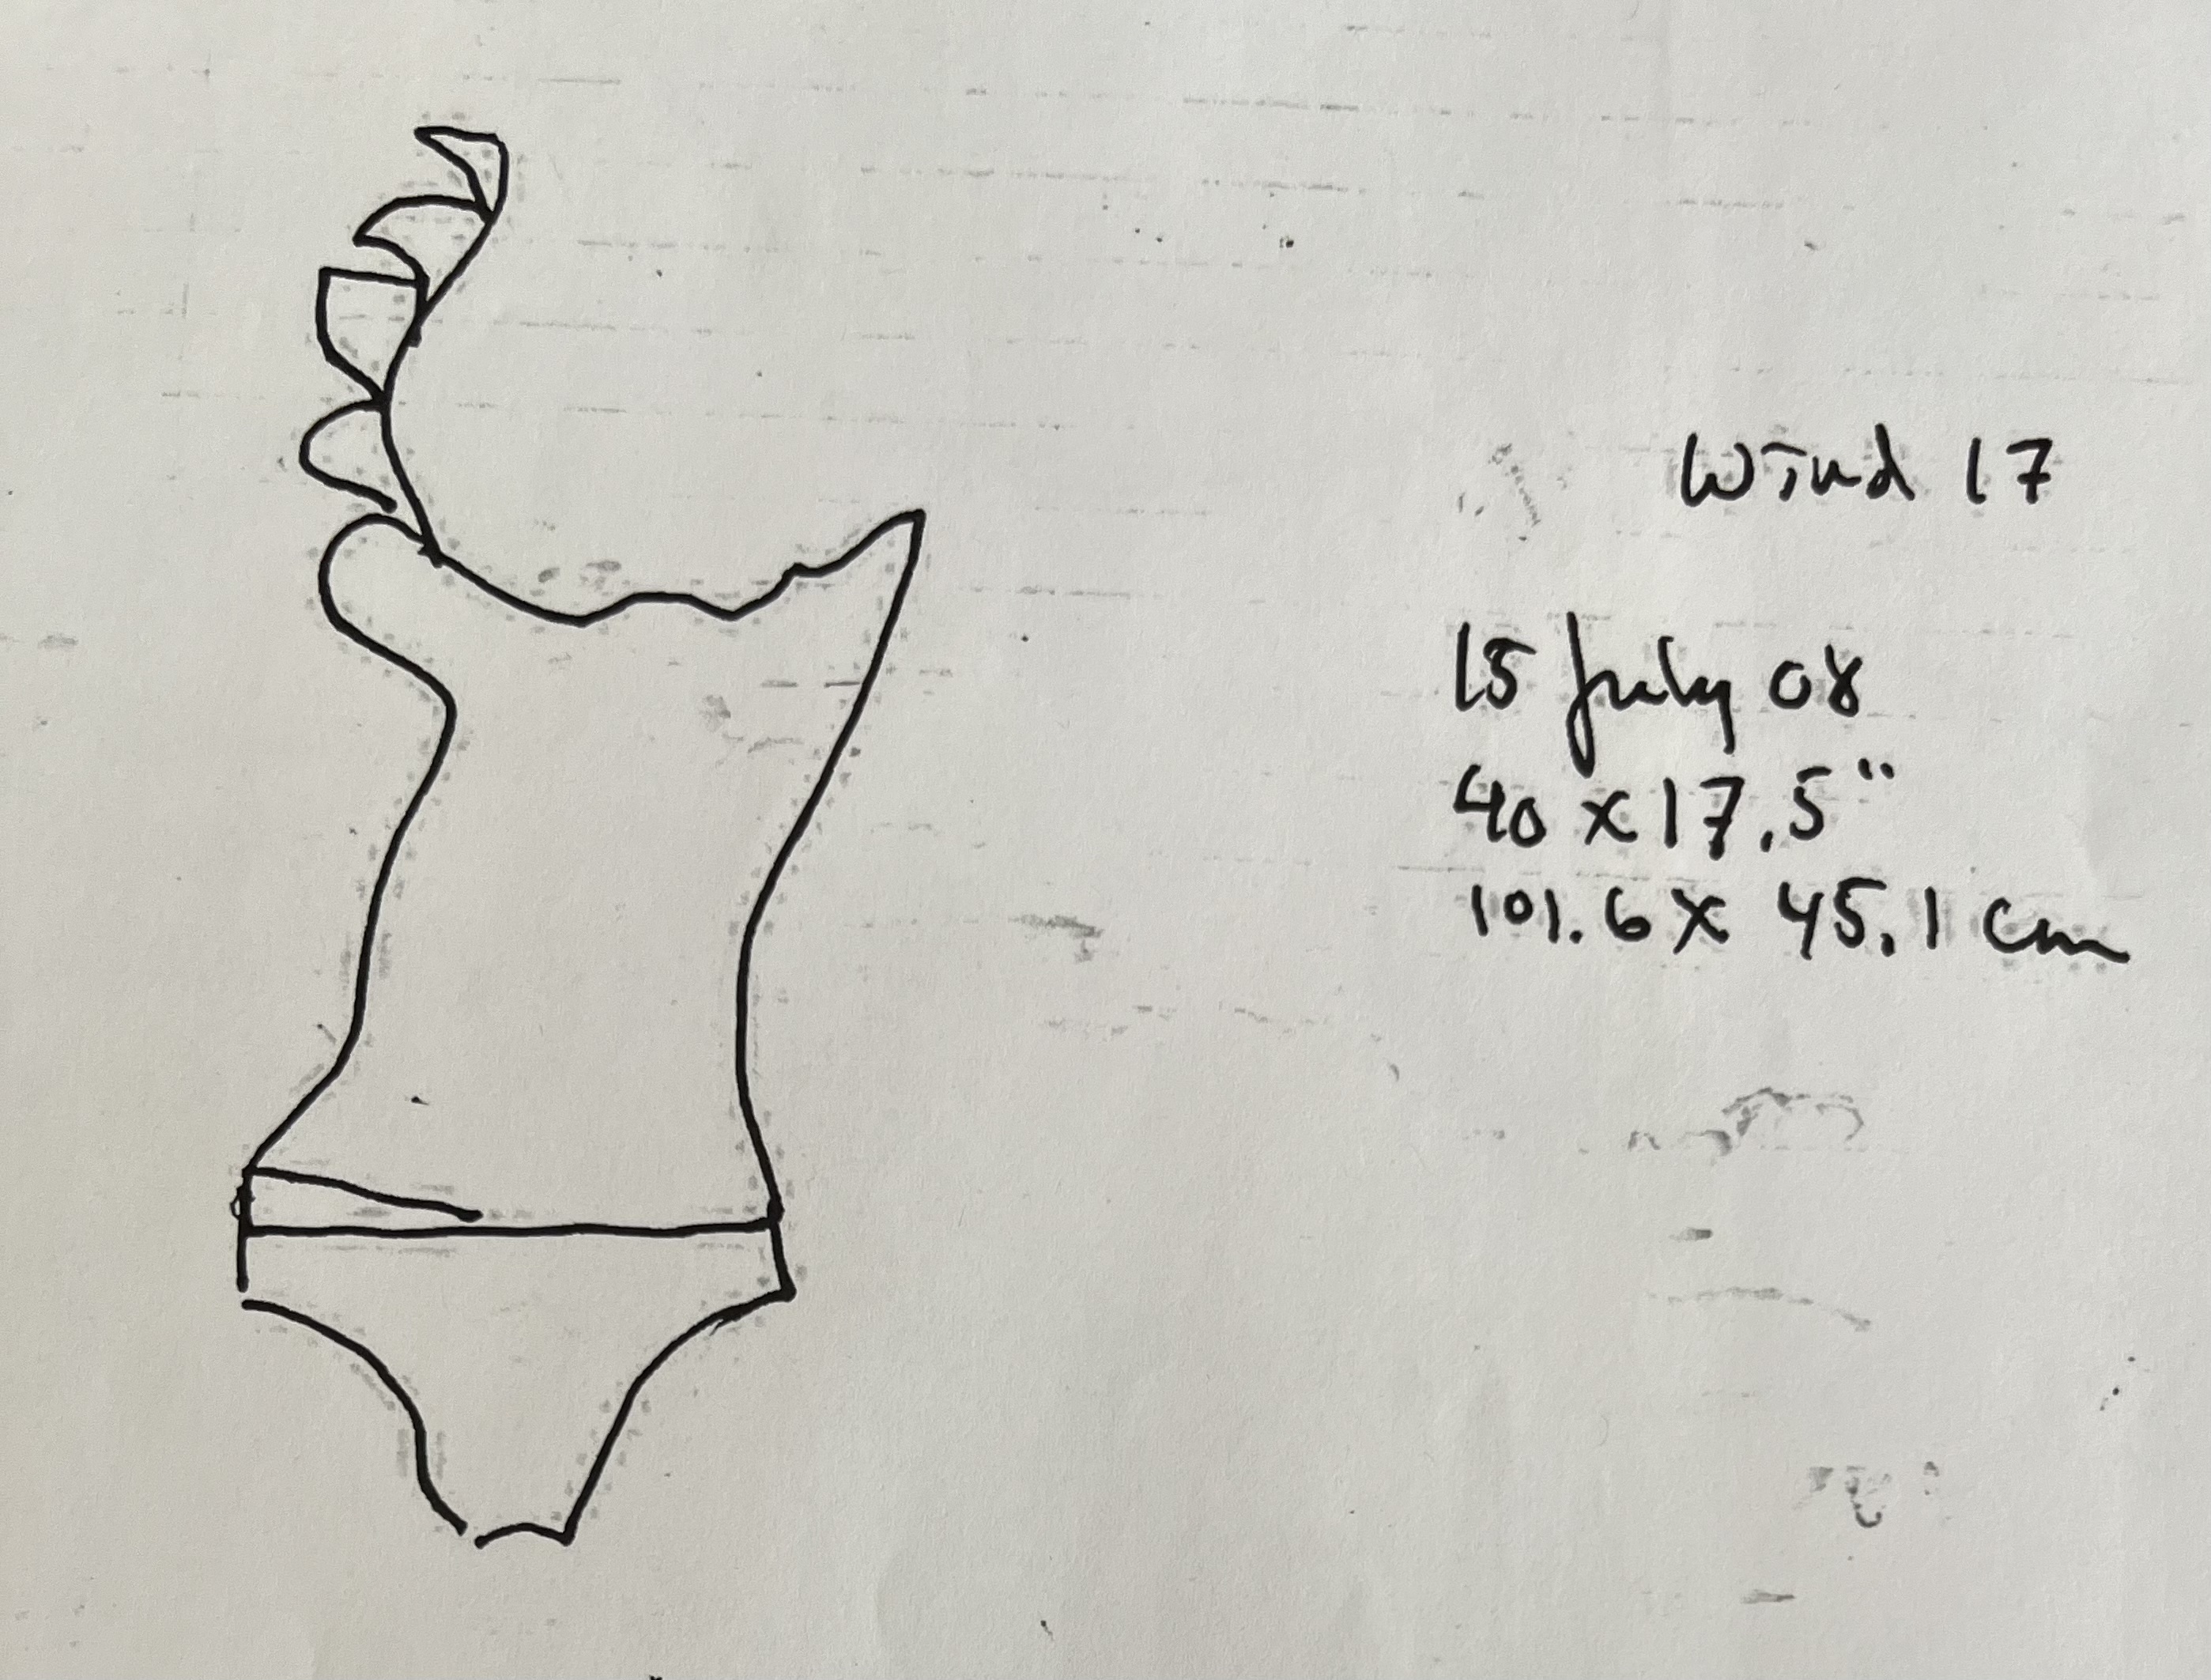 Wind 17
15 July 08
40 x 17.5"
101.6 x 45.1 cm